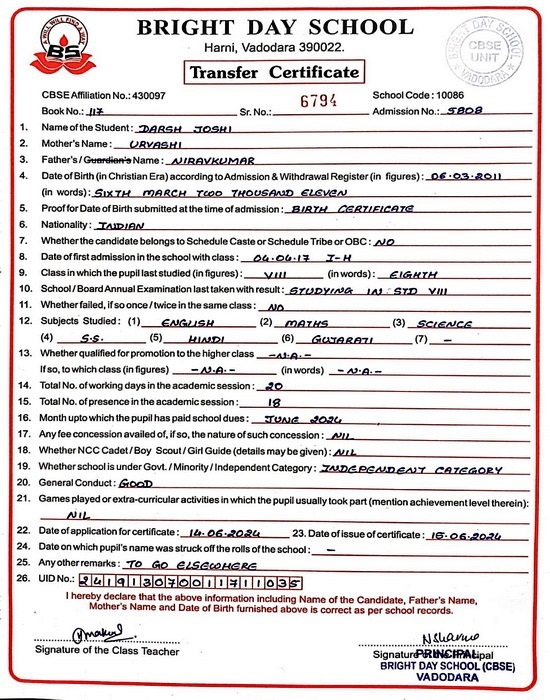 A WILL WILL FIND A WAY
BS
BRIGHT DAY SCHOOL
Harni, Vadodara 390022.
Transfer Certificate
BRIGHT DAY SCHOOL
CBSE
UNIT
VADODARA
CBSE Affiliation No.: 430097 School Code : 10086
Book No.: 117 Sr. No.: 6794 Admission No.: 5808
1. Name of the Student : DARSH JOSHI
2. Mother's Name : URVASHI
3. Father's / Guardian's Name : NIRAVKUMAR
4. Date of Birth (in Christian Era) according to Admission & Withdrawal Register (in figures) : 06.03.2011
(in words) : SIXTH MARCH TWO THOUSAND ELEVEN
5. Proof for Date of Birth submitted at the time of admission : BIRTH CERTIFICATE
6. Nationality : INDIAN
7. Whether the candidate belongs to Schedule Caste or Schedule Tribe or OBC : NO
8. Date of first admission in the school with class : 04.04.17 I-H
9. Class in which the pupil last studied (in figures) : VIII (in words) : EIGHTH
10. School / Board Annual Examination last taken with result : STUDYING IN STD VIII
11. Whether failed, if so once / twice in the same class : NO
12. Subjects Studied : (1) ENGLISH (2) MATHS (3) SCIENCE
(4) S.S. (5) HINDI (6) GUJARATI (7) -
13. Whether qualified for promotion to the higher class -N.A.-
If so, to which class (in figures) -N.A.- (in words) -N.A.-
14. Total No. of working days in the academic session : 20
15. Total No. of presence in the academic session : 18
16. Month upto which the pupil has paid school dues : JUNE 2024
17. Any fee concession availed of, if so, the nature of such concession : NIL
18. Whether NCC Cadet / Boy Scout / Girl Guide (details may be given) : NIL
19. Whether school is under Govt. / Minority / Independent Category : INDEPENDENT CATEGORY
20. General Conduct : GOOD
21. Games played or extra-curricular activities in which the pupil usually took part (mention achievement level therein) :
NIL
22. Date of application for certificate : 14.06.2024 23. Date of issue of certificate : 15.06.2024
24. Date on which pupil's name was struck off the rolls of the school : -
25. Any other remarks : TO GO ELSEWHERE
26. UID No.: 241913070011711035
I hereby declare that the above information including Name of the Candidate, Father's Name,
Mother's Name and Date of Birth furnished above is correct as per school records.
Signature of the Class Teacher
PRINCIPAL
BRIGHT DAY SCHOOL (CBSE)
VADODARA